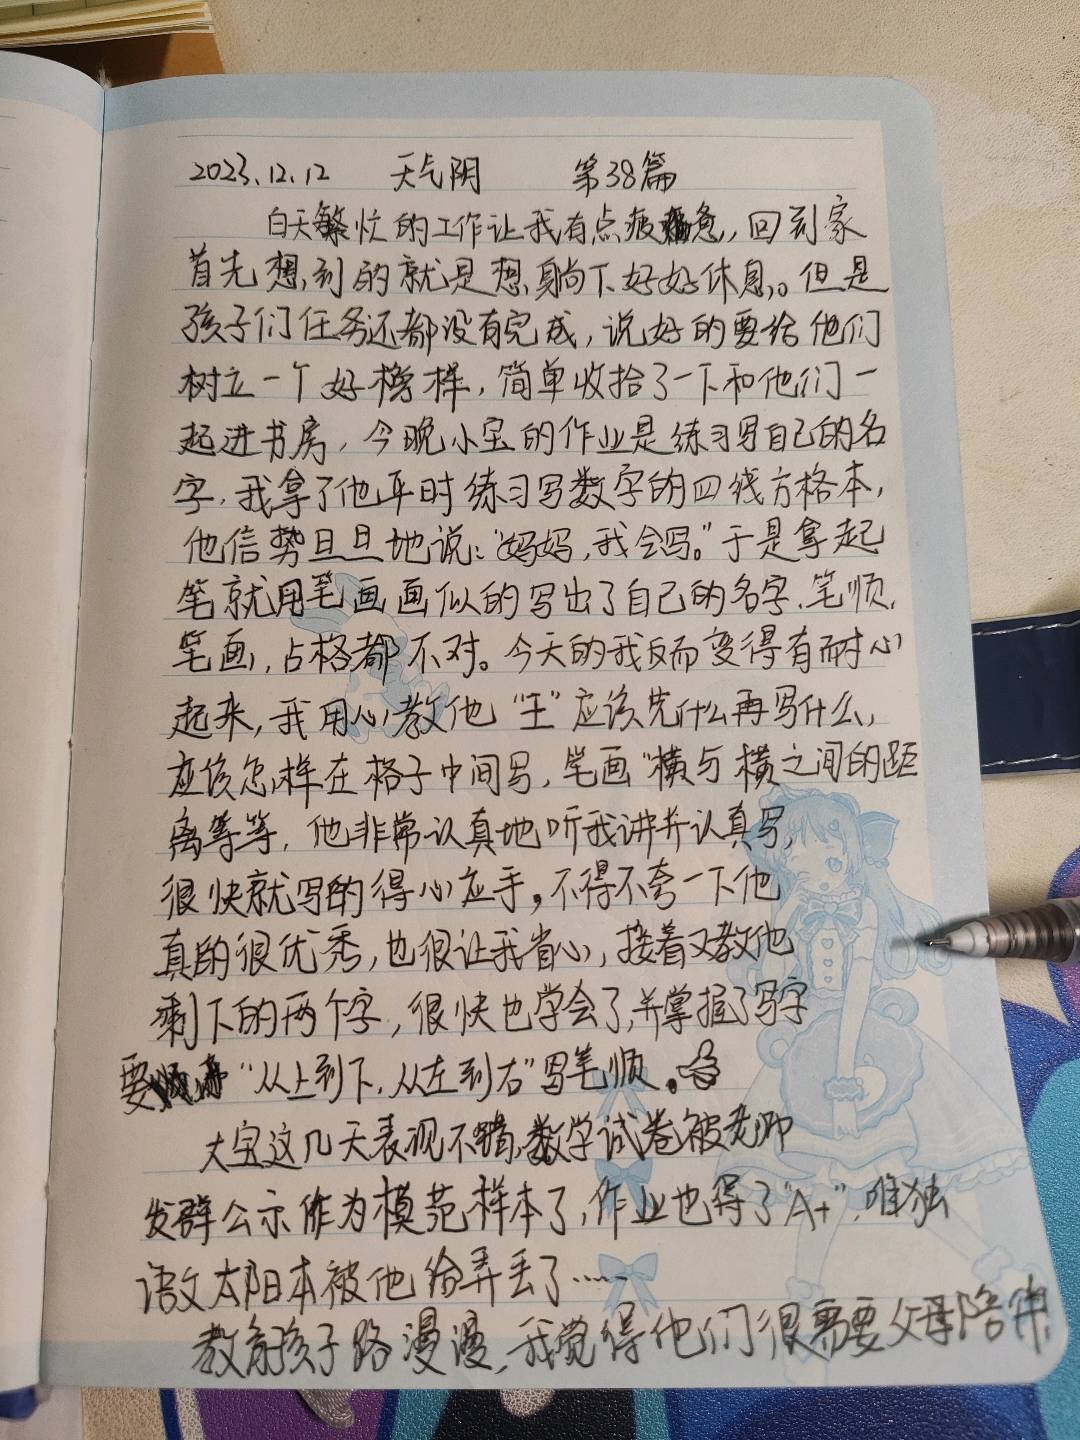 2023.12.12 天气阴 第38篇
白天繁忙的工作让我有点疲惫，回到家
首先想到的就是想躺下好好休息。但是
孩子们任务还都没有完成，说好的要给他们
树立一个好榜样，简单收拾了一下和他们一
起进书房，今晚小宝的作业是练习写自己的名
字，我拿了他平时练习写数字的四线方格本，
他信势旦旦地说：“妈妈，我会写。”于是拿起
笔就用笔画画似的写出了自己的名字、笔顺，
笔画，占格都不对。今天的我反而变得有耐心
起来，我用心教他“王”应该先什么再写什么，
应该怎样在格子中间写，笔画“横与横之间的距
离等等，他非常认真地听我讲并认真写，
很快就写的得心应手。不得不夸一下他
真的很优秀，也很让我省心，接着又教他
剩下的两个字，很快也学会了，并掌握了写字
要“从上到下，从左到右”写笔顺。
大宝这几天表现不错，数学试卷被老师
发群公示作为模范样本了，作业也得了“A+”，唯独
语文太阳本被他给弄丢了……
教育孩子路漫漫，我觉得他们很需要父母陪伴